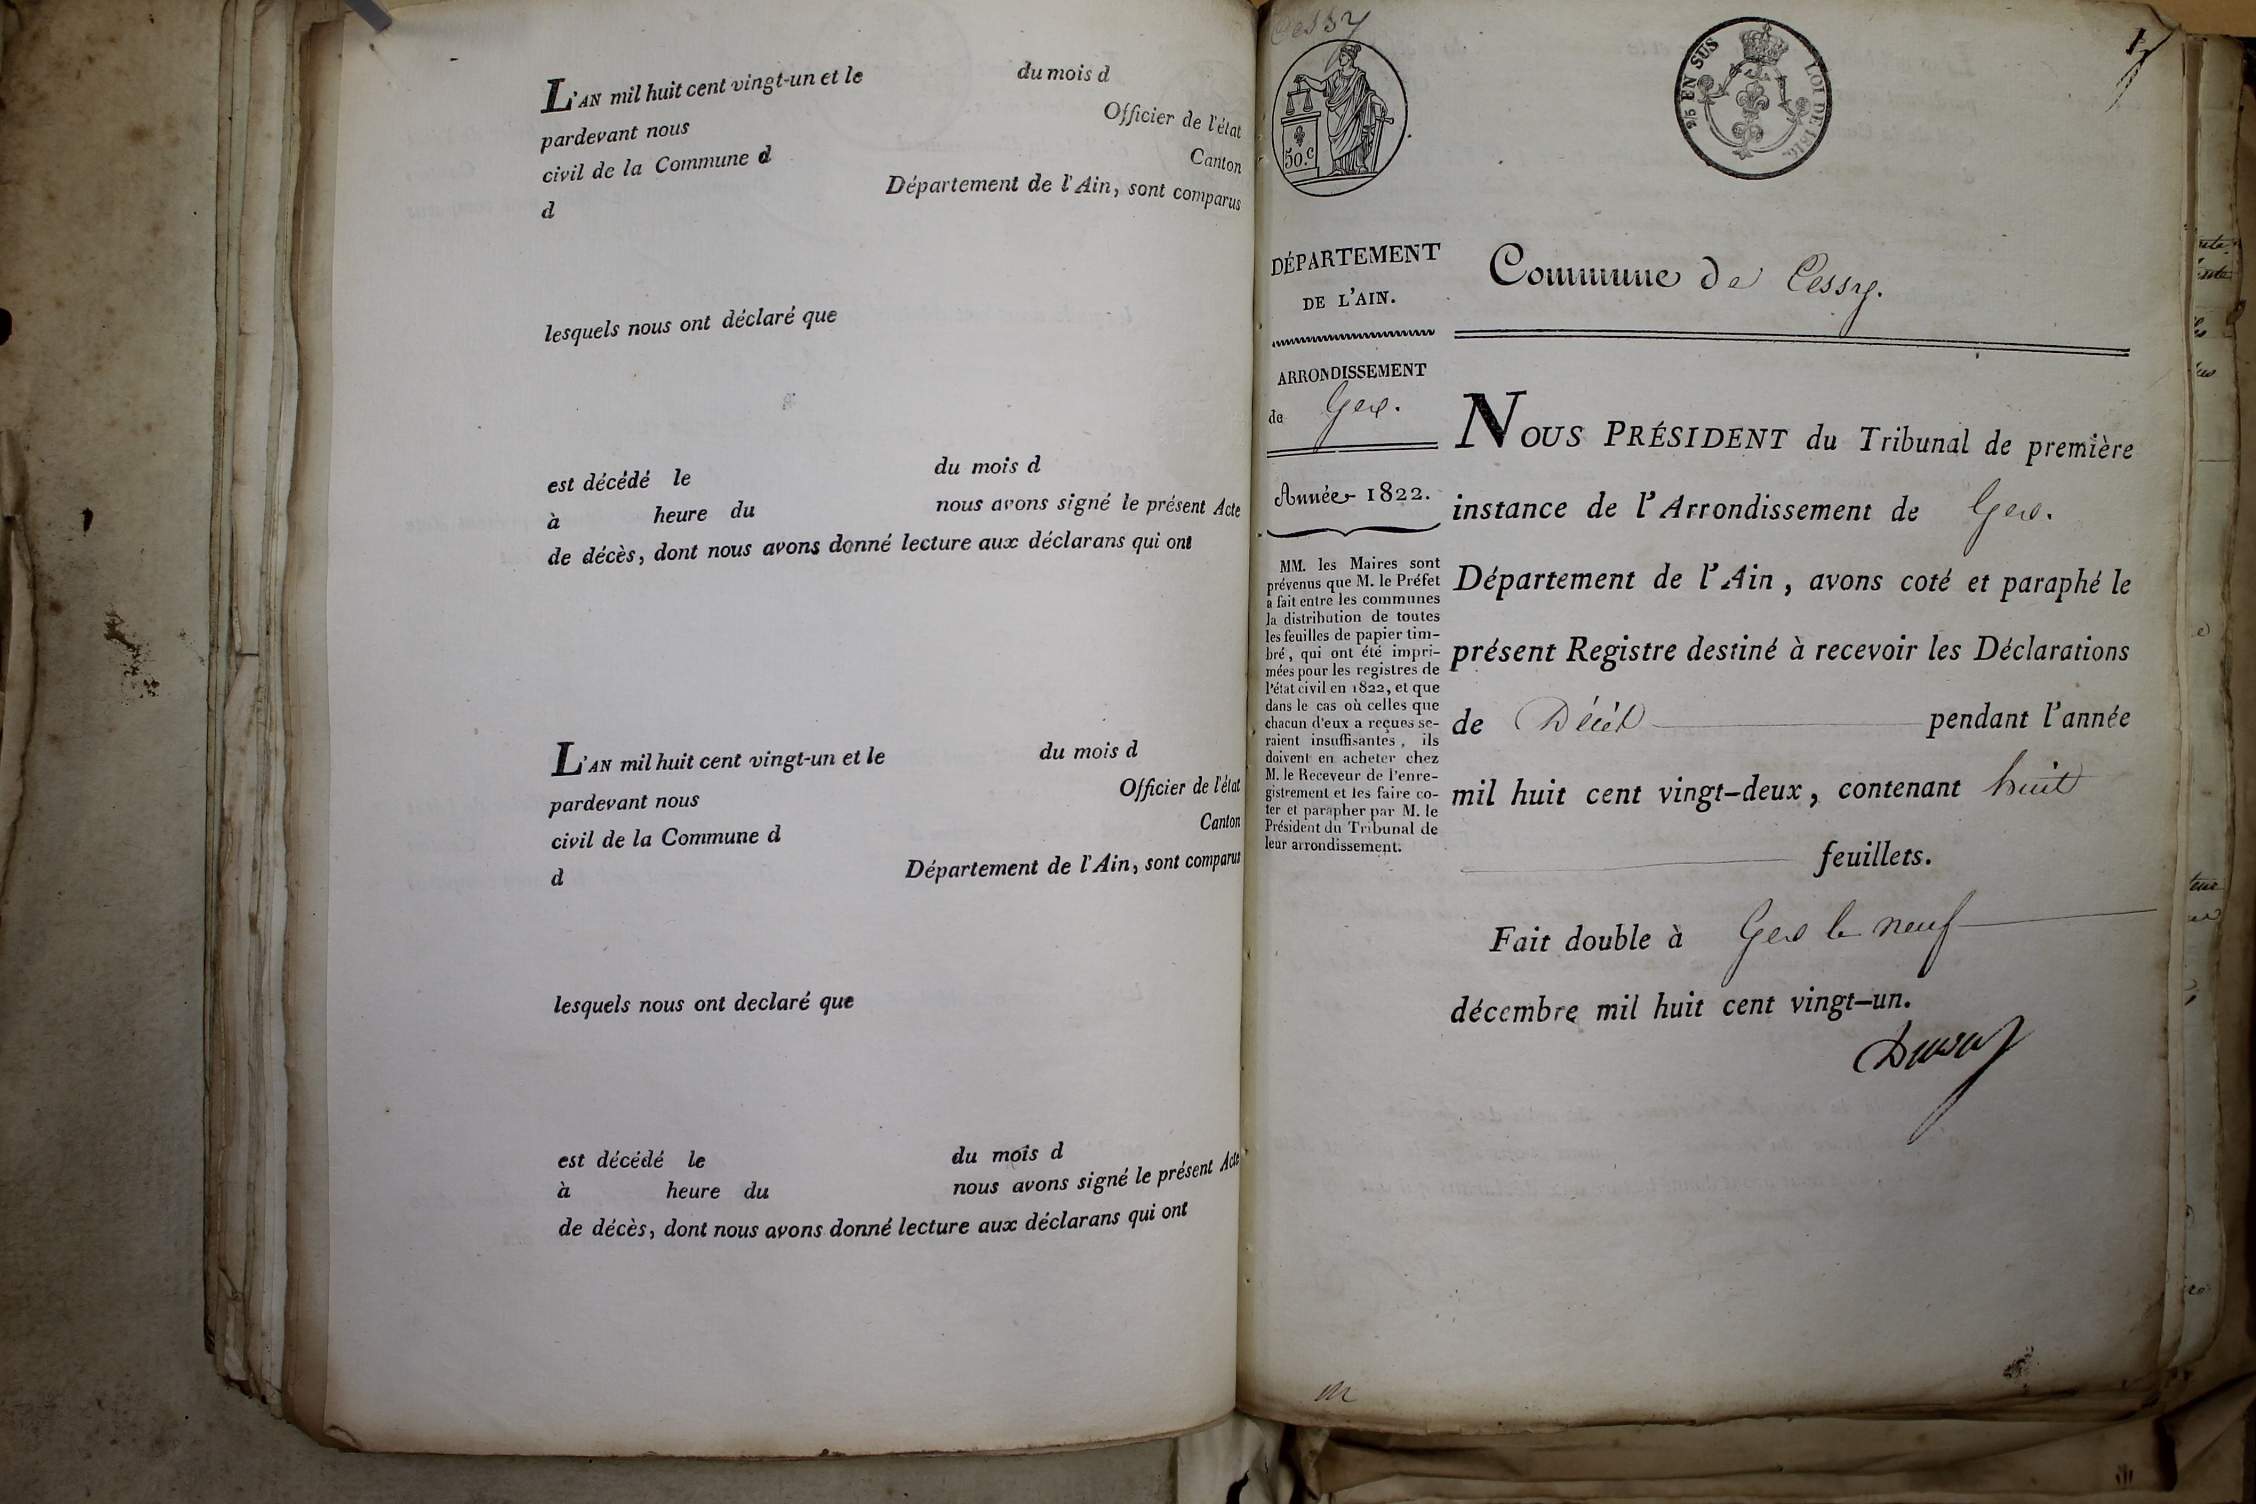 L'AN mil huit cent vingt-un et le du mois d
pardevant nous Officier de l'état
civil de la Commune d Canton
d Département de l'Ain, sont comparus
lesquels nous ont déclaré que
est décédé le du mois d
à heure du nous avons signé le présent Acte
de décès, dont nous avons donné lecture aux déclarans qui ont
L'AN mil huit cent vingt-un et le du mois d
pardevant nous Officier de l'état
civil de la Commune d Canton
d Département de l'Ain, sont comparus
lesquels nous ont declaré que
est décédé le du mois d
à heure du nous avons signé le présent Acte
de décès, dont nous avons donné lecture aux déclarans qui ont
Cessy
50.c
2/5 EN SUS LOI DE 1816.
1
DÉPARTEMENT
DE L'AIN.
ARRONDISSEMENT
de Gex.
Année 1822.
MM. les Maires sont
prévenus que M. le Préfet
a fait entre les communes
la distribution de toutes
les feuilles de papier tim-
bré, qui ont été impri-
mées pour les registres de
l'état civil en 1822, et que
dans le cas où celles que
chacun d'eux a reçues se-
raient insuffisantes, ils
doivent en acheter chez
M. le Receveur de l'enre-
gistrement et les faire co-
ter et parapher par M. le
Président du Tribunal de
leur arrondissement.
Commune de Cessy.
NOUS PRÉSIDENT du Tribunal de première
instance de l'Arrondissement de Gex.
Département de l'Ain, avons coté et paraphé le
présent Registre destiné à recevoir les Déclarations
de Décès pendant l'année
mil huit cent vingt-deux, contenant huit
feuillets.
Fait double à Gex le neuf
décembre mil huit cent vingt-un.